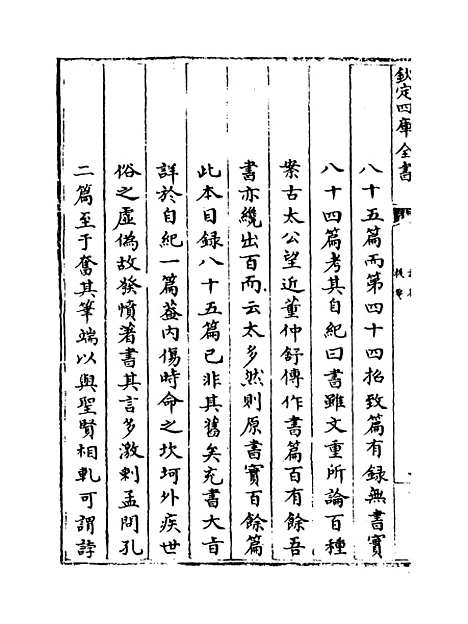 欽定四庫全書
八十五篇而第四十四招致篇有録無書實
八十四篇考其自紀曰書雖文重所論百種
案古太公望近董仲舒傳作書篇百有餘吾
書亦纔出百而云太多然則原書實百餘篇
此本目録八十五篇已非其舊矣充書大旨
詳於自紀一篇蓋内傷時命之坎坷外疾世
俗之虚偽故發憤著書其言多激刺孟問孔
二篇至于奮其筆端以與聖賢相軋可謂誖